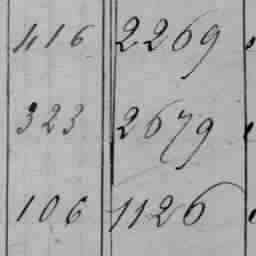 416 2269
323 2679
106 1126